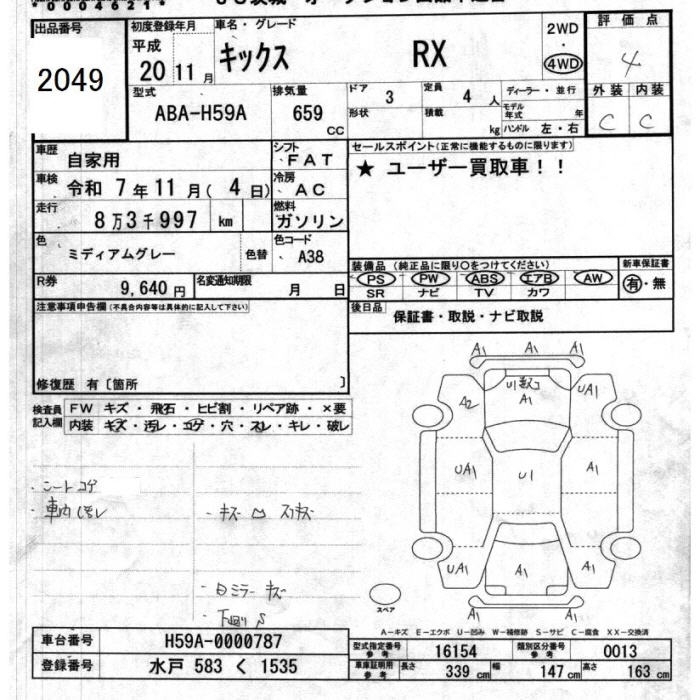 *0004621*
出品番号 初度登録年月 車名・グレード 評価点
2049
平成 20 11 月 キックス RX 2WD ・ 4WD 4
型式 排気量 ドア 3 定員 4 人 ディーラー・並行 外装 内装
ABA-H59A 659 CC 形状 積載 kg モデル年式 年 ハンドル 左・右 C C
車歴 自家用 シフト FAT セールスポイント(正常に機能するものに限ります)
車検 令和 7 年 11 月 ( 4 日) 冷房 AC ★ ユーザー買取車!!
走行 8万3千997 km 燃料 ガソリン
色 ミディアムグレー 色替 色コード A38
装備品(純正品に限り○をつけてください) 新車保証書
R券 9,640 円 名変通知期限 月 日 PS PW ABS エアB AW 有・無
SR ナビ TV カワ
注意事項申告欄(不具合内容等は具体的に記入して下さい) 後日品 保証書・取説・ナビ取説
修復歴 有〔箇所 〕
検査員記入欄 FW キズ・飛石・ヒビ割・リペア跡・×要
内装 キズ・汚レ・コゲ・穴・スレ・キレ・破レ
A1 A1 A1
A2 U1 A1 UA1
UA1 U1 A1
UA1 A1 A1
A1 A1
・シートコゲ
・車内
・キズ スリキズ
ミラーキズ
下廻り S
スペア
A－キズ E－エクボ U－凹み W－補修跡 S－サビ C－腐食 XX－交換済
車台番号 H59A-0000787 型式指定番号 参考 16154 類別区分番号 参考 0013
登録番号 水戸 583 く 1535 車庫証明用 参考 長さ 339 cm 幅 147 cm 高さ 163 cm